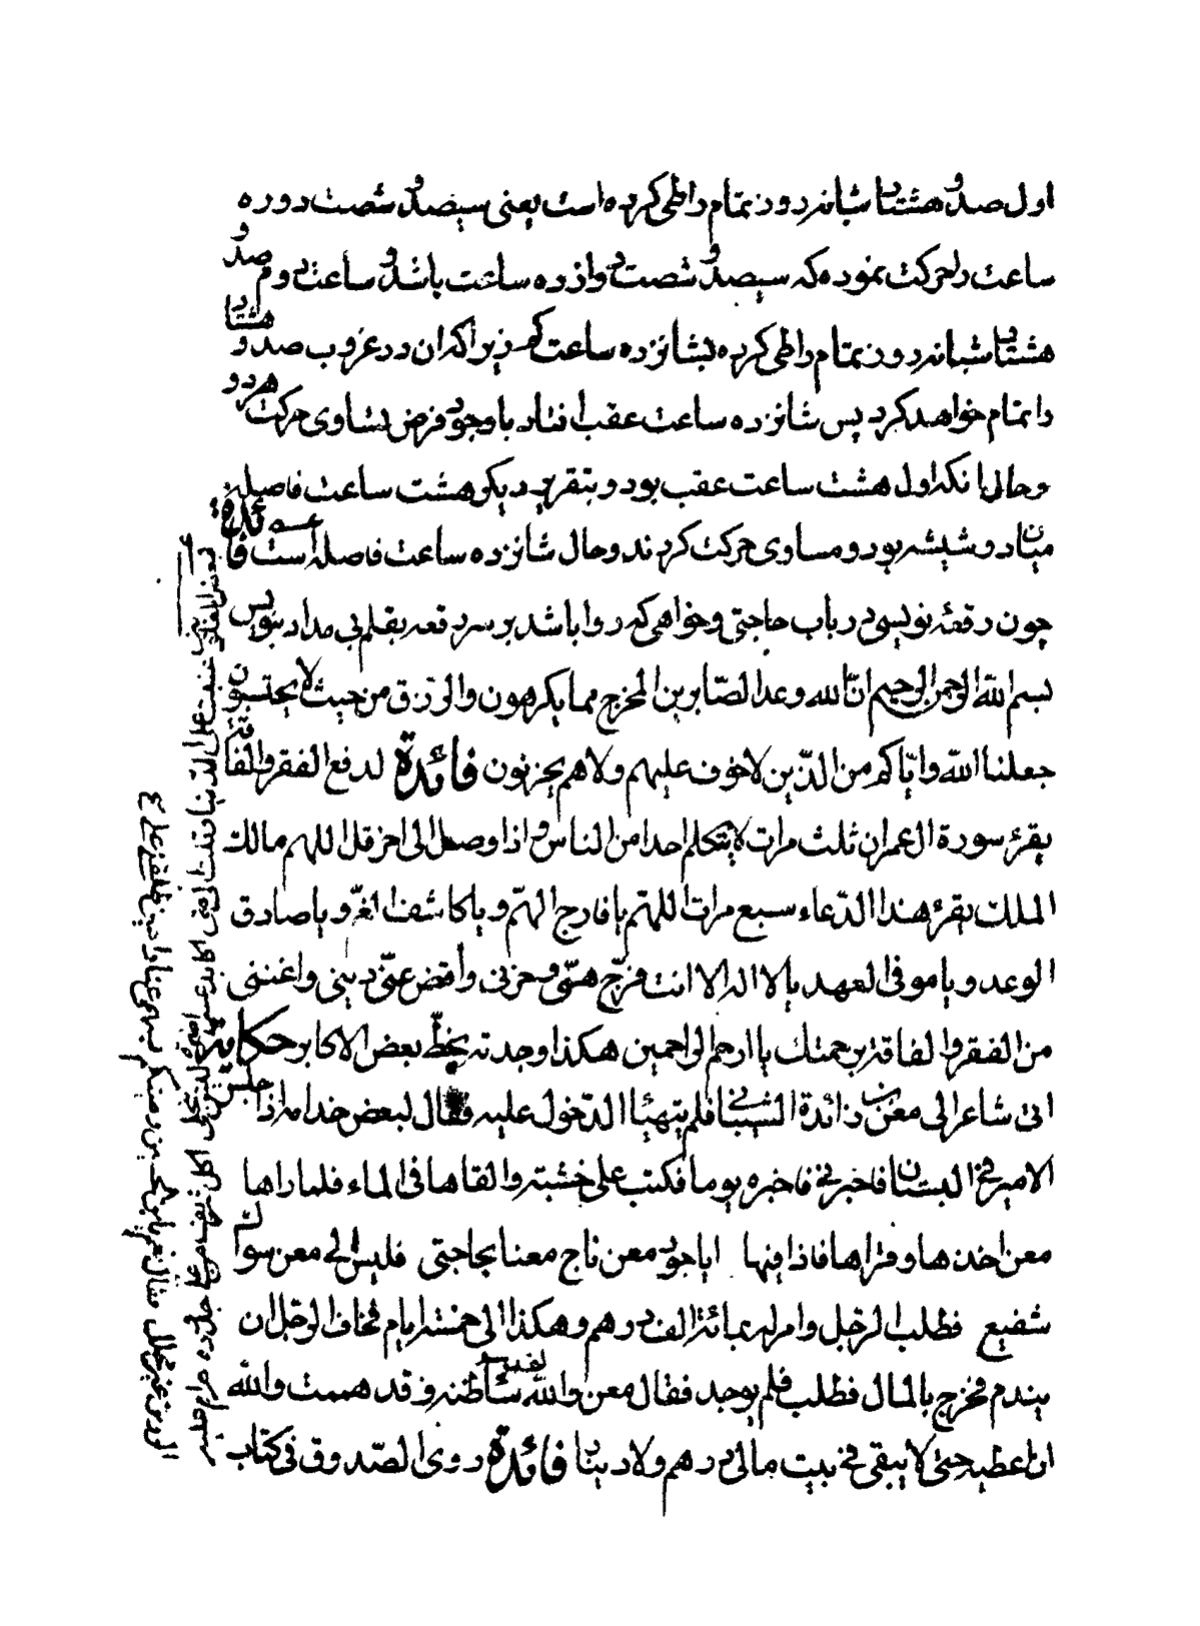 اول صد و هشتاد شبانه روز تمام را طی کرده است یعنی سیصد و شصت دوره
ساعت را حرکت نموده که سیصد و شصت دوازده ساعت باشد و ساعت دوم صد و
هشتاد شبانه روز تمام را طی کرده بشانزده ساعت کم زیرا که ان در غروب صد و هشتاد
را تمام خواهد کرد پس شانزده ساعت عقب افتاد با وجود فرض تساوی حرکت هر دو
و حال انکه اول هشت ساعت عقب بود و بتقریر دیکر هشت ساعت فاصله
میان دو شیشه بود و مساوی حرکت کردند و حال شانزده ساعت فاصله است فائدة
چون رقعه نویسی در باب حاجتی و خواهی که روا باشد بر سر رقعه بقلم بی مداد بنویس
بسم الله الرحمن الرحیم انّ الله وعد الصّابرین المخرج مما یکرهون والرزق من حیث لا یحتسبون
جعلنا الله وایّاکم من الّذین لاخوف علیهم ولاهم یحزنون فائدة لدفع الفقر والفاقة
یقرء سورة ال عمران ثلث مرات لا یتکلم احدا من الناس و اذا وصل الی اخر قل اللهم مالک
الملک یقرء هذا الدّعاء سبع مرات اللهمّ یا فارج الهمّ و یا کاشف الغمّ و یا صادق
الوعد و یا موفی العهد یا لا اله الا انت فرّج همّی و حزنی واقض عنّی دینی واغننی
من الفقر والفاقة برحمتک یا ارحم الراحمین هکذا وجدته بخطّ بعض الاکابر حکایة
اتی شاعر الی معن بن زائدة الشیبانی فلم یتهیّا الدّخول علیه فقال لبعض خدامه اذا جلس
الامیر فی البستان فاخبرنی فاخبره یوما فکتب علی خشبة والقاها فی الماء فلما راها
معن اخذها و قراها فاذا فیها ایا جود معن ناج معنا بحاجتی فلیس الی معن سواک
شفیع فطلب الرجل وامر له بمائة الف درهم و هکذا الی خمسة ایام فخاف الرجل ان
یندم فخرج بالمال فطلب فلم یوجد فقال معن والله لقد ساء ظنه و قد هممت والله
ان اعطیه حتی لا یبقی فی بیت مالی درهم ولا دینار فائدة روی الصّدوق فی کتاب